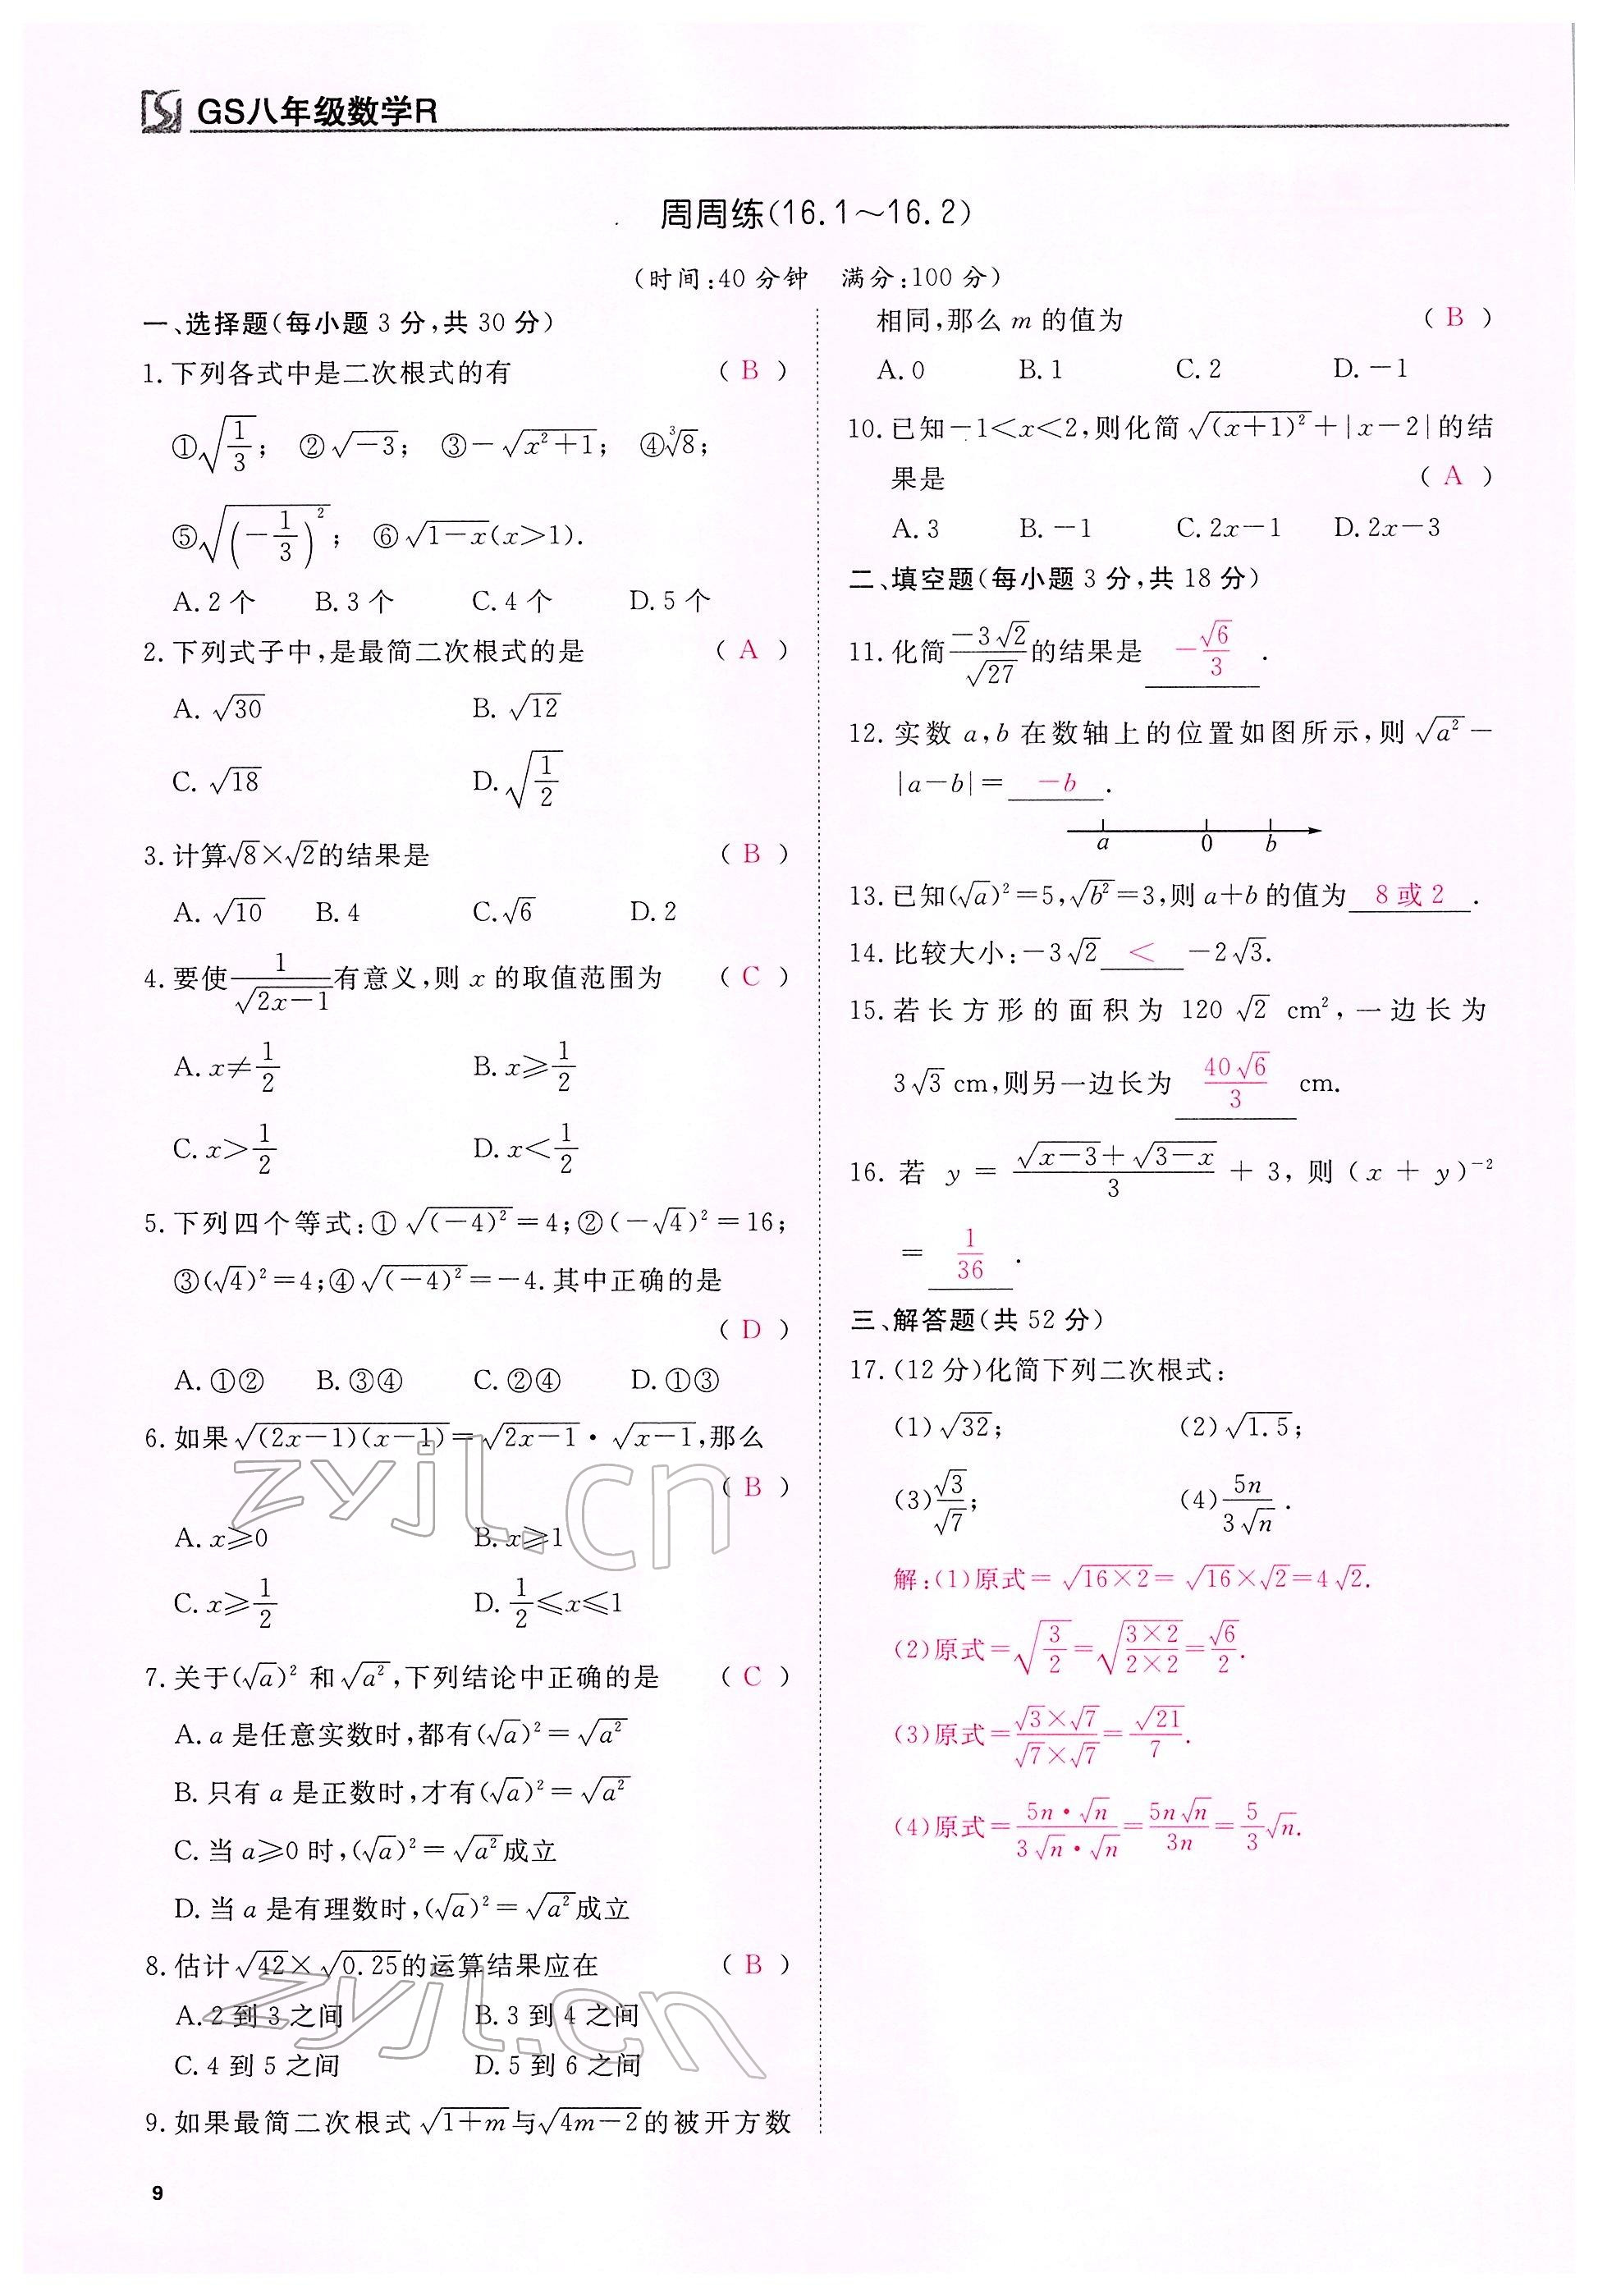 GS八年级数学R
周周练(16.1～16.2)
(时间:40分钟 满分:100分)
一、选择题(每小题3分,共30分)
1.下列各式中是二次根式的有 ( B )
①√(1/3); ②√(-3); ③-√(x²+1); ④∛8;
⑤√((-1/3)²); ⑥√(1-x)(x>1).
A.2个 B.3个 C.4个 D.5个
2.下列式子中,是最简二次根式的是 ( A )
A.√30 B.√12
C.√18 D.√(1/2)
3.计算√8×√2的结果是 ( B )
A.√10 B.4 C.√6 D.2
4.要使1/√(2x-1)有意义,则x的取值范围为 ( C )
A.x≠1/2 B.x≥1/2
C.x>1/2 D.x<1/2
5.下列四个等式:①√((-4)²)=4;②(-√4)²=16;
③(√4)²=4;④√((-4)²)=-4.其中正确的是
( D )
A.①② B.③④ C.②④ D.①③
6.如果√((2x-1)(x-1))=√(2x-1)·√(x-1),那么
( B )
A.x≥0 B.x≥1
C.x≥1/2 D.1/2≤x≤1
7.关于(√a)²和√(a²),下列结论中正确的是 ( C )
A.a是任意实数时,都有(√a)²=√(a²)
B.只有a是正数时,才有(√a)²=√(a²)
C.当a≥0时,(√a)²=√(a²)成立
D.当a是有理数时,(√a)²=√(a²)成立
8.估计√42×√0.25的运算结果应在 ( B )
A.2到3之间 B.3到4之间
C.4到5之间 D.5到6之间
9.如果最简二次根式√(1+m)与√(4m-2)的被开方数
相同,那么m的值为 ( B )
A.0 B.1 C.2 D.-1
10.已知-1<x<2,则化简√((x+1)²)+|x-2|的结
果是 ( A )
A.3 B.-1 C.2x-1 D.2x-3
二、填空题(每小题3分,共18分)
11.化简(-3√2)/√27的结果是 -√6/3 .
12.实数a,b在数轴上的位置如图所示,则√(a²)-
|a-b|= -b .
a 0 b
13.已知(√a)²=5,√(b²)=3,则a+b的值为 8或2 .
14.比较大小:-3√2 < -2√3.
15.若长方形的面积为120√2 cm²,一边长为
3√3 cm,则另一边长为 40√6/3 cm.
16.若y=(√(x-3)+√(3-x))/3+3,则(x+y)⁻²
= 1/36 .
三、解答题(共52分)
17.(12分)化简下列二次根式:
(1)√32; (2)√1.5;
(3)√3/√7; (4)5n/(3√n).
解:(1)原式=√(16×2)=√16×√2=4√2.
(2)原式=√(3/2)=√((3×2)/(2×2))=√6/2.
(3)原式=(√3×√7)/(√7×√7)=√21/7.
(4)原式=(5n·√n)/(3√n·√n)=5n√n/3n=5/3√n.
9
zyjl.cn
zyjl.cn